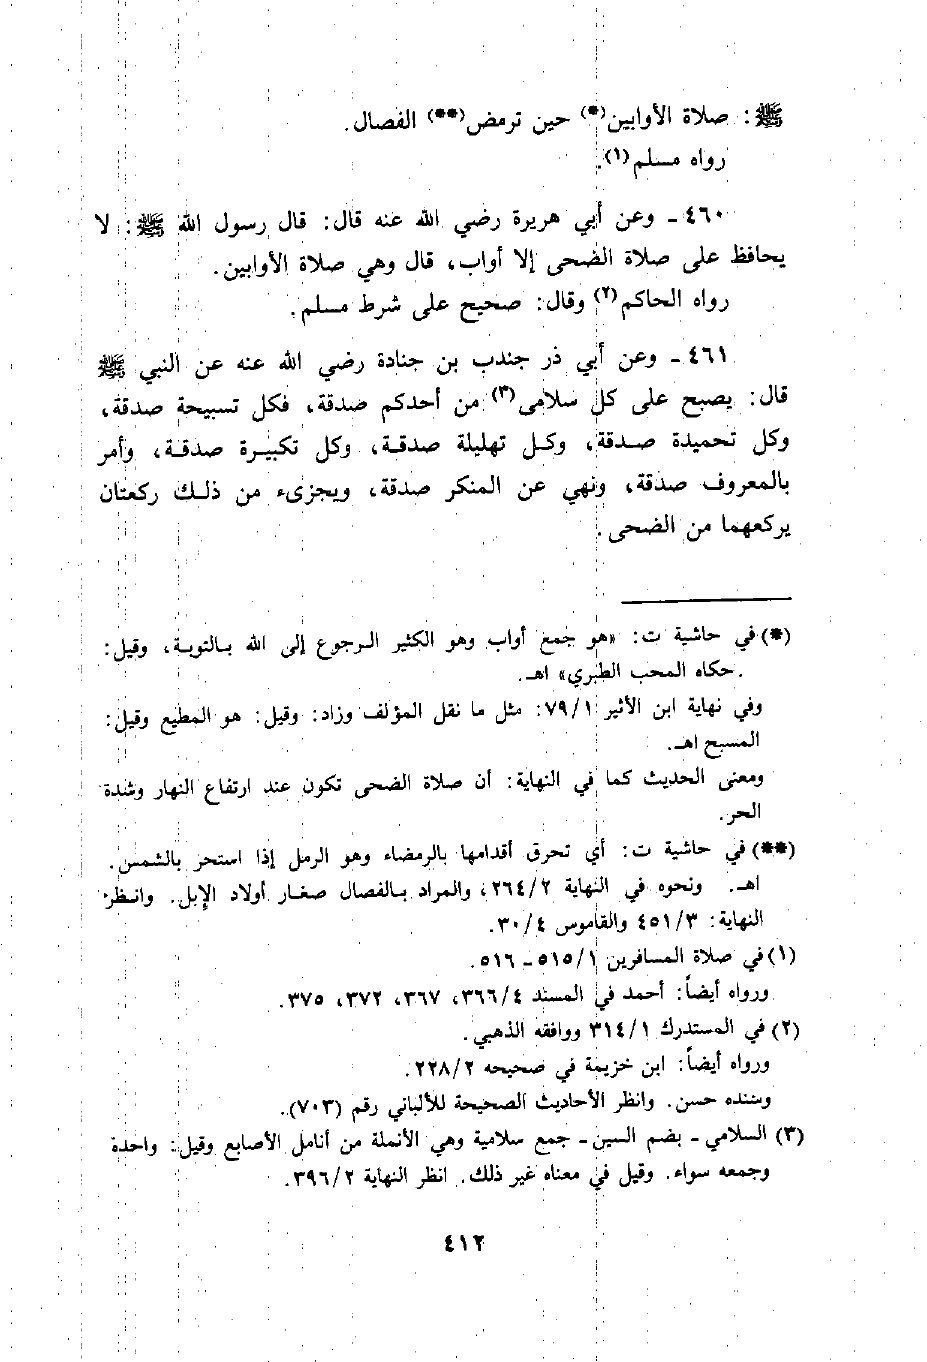 ﷺ: صلاة الأوابين(*) حين ترمض(**) الفصال.
رواه مسلم(١).
٤٦٠ـ وعن أبي هريرة رضي الله عنه قال: قال رسول الله ﷺ: لا
يحافظ على صلاة الضحى إلا أواب، قال وهي صلاة الأوابين.
رواه الحاكم(٢) وقال: صحيح على شرط مسلم.
٤٦١ـ وعن أبي ذر جندب بن جنادة رضي الله عنه عن النبي ﷺ
قال: يصبح على كل سلامى(٣) من أحدكم صدقة، فكل تسبيحة صدقة،
وكل تحميدة صدقة، وكل تهليلة صدقة، وكل تكبيرة صدقة، وأمر
بالمعروف صدقة، ونهي عن المنكر صدقة، ويجزىء من ذلك ركعتان
يركعهما من الضحى.
(*) في حاشية ت: «هو جمع أواب وهو الكثير الرجوع إلى الله بالتوبة، وقيل:
حكاه المحب الطبري» اهـ.
وفي نهاية ابن الأثير ٧٩/١: مثل ما نقل المؤلف وزاد: وقيل: هو المطيع وقيل:
المسبح اهـ.
ومعنى الحديث كما في النهاية: أن صلاة الضحى تكون عند ارتفاع النهار وشدة
الحر.
(**) في حاشية ت: أي تحرق أقدامها بالرمضاء وهو الرمل إذا استحر بالشمس.
اهـ. ونحوه في النهاية ٢٦٤/٢، والمراد بالفصال صغار أولاد الإبل. وانظر
النهاية: ٤٥١/٣ والقاموس ٣٠/٤.
(١) في صلاة المسافرين ٥١٥/١ـ ٥١٦.
ورواه أيضاً: أحمد في المسند ٣٦٦/٤، ٣٦٧، ٣٧٢، ٣٧٥.
(٢) في المستدرك ٣١٤/١ ووافقه الذهبي.
ورواه أيضاً: ابن خزيمة في صحيحه ٢٢٨/٢.
وسنده حسن. وانظر الأحاديث الصحيحة للألباني رقم (٧٠٣).
(٣) السلامي ـ بضم السين ـ جمع سلامية وهي الأنملة من أنامل الأصابع وقيل: واحدة
وجمعه سواء. وقيل في معناه غير ذلك. انظر النهاية ٣٩٦/٢.
٤١٢